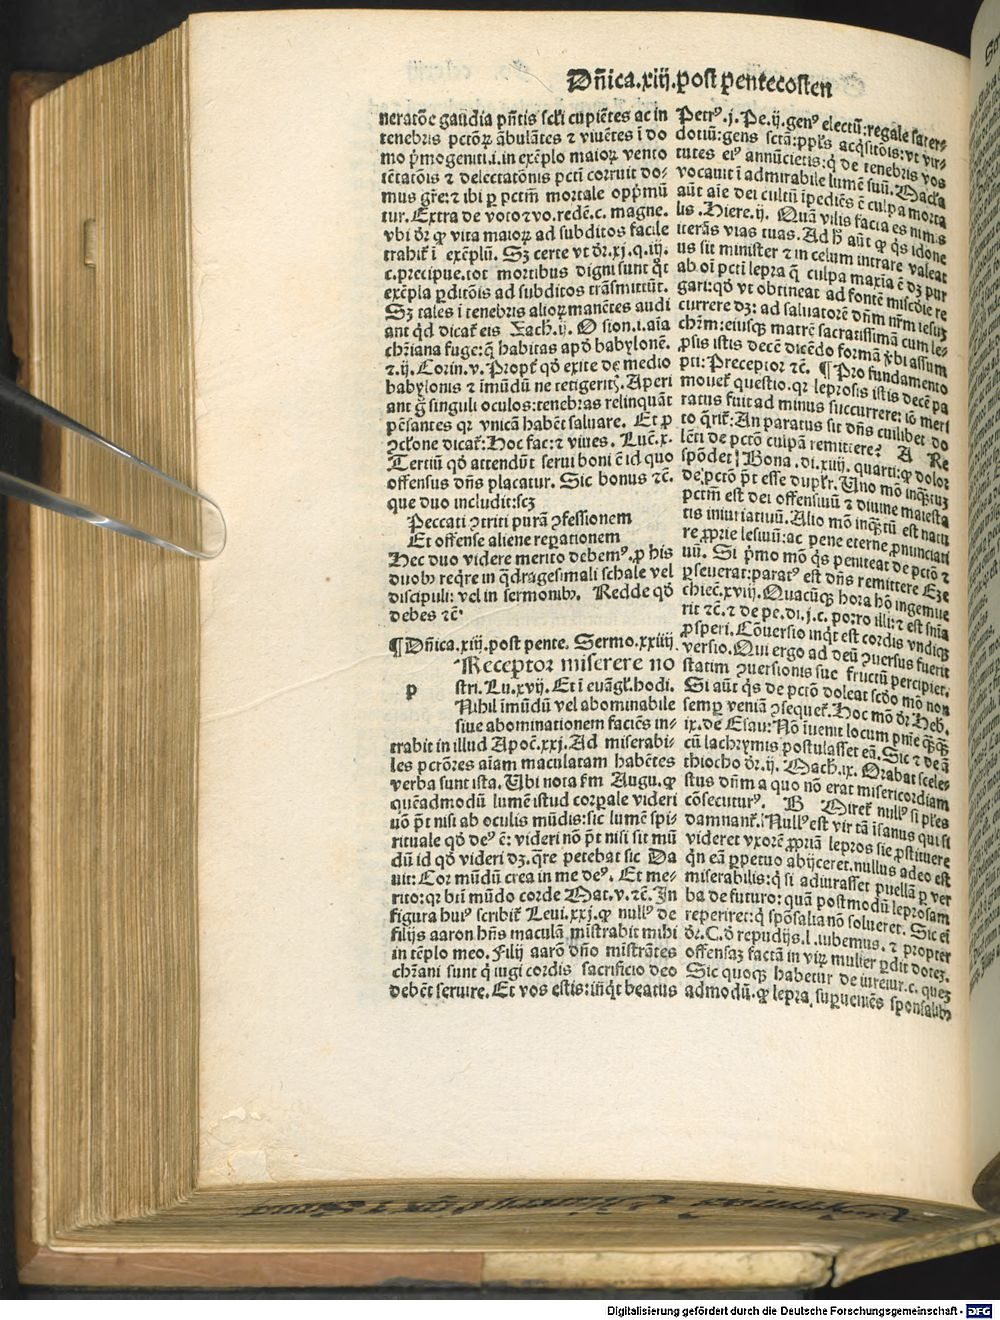 Dñica.xiij.post pentecosten
neratōe gaudia pñtis scłi cupiētes ac in
tenebris pctōꝝ ābulātes ⁊ viuētes ī do
mo p̄mogeniti.i.in exēplo maioꝝ vento
tētatōis ⁊ delectatōnis pcti corruit do-
mus gr̄e:⁊ ibi ꝑ pctm̄ mortale opp̄mū
tur. Extra de voto ⁊ vo.redē.c. magne.
vbi dr̄ ꝙ vita maioꝝ ad subditos facile
trahit̄ ī exēplū. Sꝫ certe vt dr̄.xj.q.iij.
c.precipue.tot mortibus digni sunt q̄t
exēpla ꝑditōis ad subditos trāsmittūt.
Sꝫ tales ī tenebris alioꝝ manētes audi
ant qd̄ dicat̄ eis Zach.ij. O sion.i.aīa
chr̄iana fuge:q̄ habitas apd̄ babylonē.
⁊.ij.Corin.v. Propt̄ qd̄ exite de medio
babylonis ⁊ imūdū ne tetigeritꝭ. Aperi
ant g̊ singuli oculos:tenebras relinquāt
pēsantes qꝛ vnicā habēt saluare. Et ꝑ
ꝯclone dicat̄:Hoc fac:⁊ viues. Luc̄.x.
Tertiū qd̄ attendūt serui boni ē id quo
offensus dñs placatur. Sic bonus ⁊c̄.
que duo includit:scꝫ
Peccati ꝯtriti purā ꝯfessionem
Et offense aliene reꝑationem
Hec duo videre merito debemꝰ, ꝓ his
duobꝫ req̄re in q̄dragesimali schale vel
discipuli:vel in sermonibꝫ. Redde qd̄
debes ⁊c̄.
¶Dñica.xiij.post pente. Sermo.xxiiij.
Receptor miserere no
p stri.Lu.xvij. Et ī euāgl̄.hodi.
Nihil imūdū vel abominabile
siue abominationem faciēs in-
trabit in illud Apoc̄.xxj. Ad miserabi-
les pctōres aīam maculatam habētes
verba sunt ista. Vbi nota ẜm Augu.ꝙ
quēadmodū lumē istud corꝑale videri
nō p̄t nisi ab oculis mūdis:sic lumē spi-
rituale qd̄ deꝰ ē: videri nō p̄t nisi sit mū
dū id qd̄ videri dꝫ.q̄re petebat sic Da
uit: Cor mūdū crea in me deꝰ. Et me-
rito:qꝛ btī mūdo corde Mat.v.⁊c̄. In
figura huiꝰ scribit̄ Leui.xxj.ꝙ nullꝰ de
filijs aaron hn̄s maculā mīstrabit mihi
in tēplo meo. Filij aarō dn̄o mīstrātes
chr̄iani sunt q̄ iugi cordis sacrificio deo
debēt seruire. Et vos estis:inq̄t beatus
Petrꝰ.j.Pe.ij.genꝰ electū:regale sacer-
dotiū:gens sctā:ppl̄s acq̄sitōis:vt vir-
tutes eiꝰ annūcietis:q̄ de tenebris vos
vocauit ī admirabile lumē suū. Mac̄la
aūt aīe dei cultū īpediēs ē culpa morta
lis. Hiere.ij. Quā vilis facta es nimis
iterās vias tuas. Ad h̄ aūt ꝙ q̄s idone
us sit minister ⁊ in celum intrare valeat
ab oī pcti lepra q̄ culpa maxīa ē dꝫ pur
gari:qd̄ vt obtineat ad fontē miscd̄ie re
currere dꝫ: ad saluatorē dn̄m nr̄m iesuꝫ
chr̄m:eiusqꝫ matrē sacratissimā cum le-
ꝓsis istis decē dicēdo formā v̄bi assum
pti: Preceptor ⁊c̄. ¶Pro fundamento
mouet̄ questio.qꝛ leprosis istis decē pa
ratus fuit ad minus succurrere: iō meri
to q̄rit̄: An paratus sit dn̄s cuilibet do
lēti de pctō culpā remittere? A Re
spōdet Bona.di.xiiij. quarti:ꝙ dolor
de pctō p̄t esse duplr̄. Uno mō inq̄ntuꝫ
pctm̄ est dei offensiuū ⁊ diuine maiesta
tis iniuriatiuū. Alio mō inq̄ntū est natu
re ꝓprie lesiuū:ac pene eterne ꝓnunciati
uū. Si p̄mo mō q̄s peniteat de pctō ⁊
ꝑseuerat:paratꝰ est dn̄s remittere Eze
chiel̄.xviij. Quacūqꝫ hora hō ingemue
rit ⁊c̄.⁊ de pe.di.j.c. porro illi:⁊ est sn̄ia
ꝓsperi. Cōuersio inq̄t est cordis vndiqꝫ
versio. Qui ergo ad deū ꝯuersus fuerit
statim ꝯuersionis sue fructū percipiet.
Si aūt q̄s de pctō doleat scd̄o mō non
semꝑ veniā ꝯsequet̄. Hoc mō dr̄ Heb.
ix.de Esau: Nō īuenit locum pn̄ie q̄q̄ꝫ
cū lachrymis postulasset eā. Sic ⁊ de ā
thiocho dr̄.ij. Mach.ix. Orabat sceles
stus dn̄m a quo nō erat misericordiam
cōsecuturꝰ. B Miret̄ nullꝰ si pl̄es
damnant̄. Nullꝰ est vir tā īsanus qui si
videret vxorē ꝓpriā lepros sic ꝓstituere
qn̄ eā ꝑpetuo abijceret.nullus adeo est
miserabilis:q̄ si adiurasset puellā ꝑ ver
ba de futuro: quā postmodū leprosam
reperiret:q̄ spōsalia nō solueret. Sic eī
dr̄.C.d̄ repudijs.l.iubemus. ⁊ propter
offensaꝫ factā in viꝝ mulier ꝑdit doteꝫ.
Sic quoqꝫ habetur de iureiur.c. queꝫ
admodū.ꝙ lepra superueniēs sponsalibꝫ
Digitalisierung gefördert durch die Deutsche Forschungsgemeinschaft - DFG